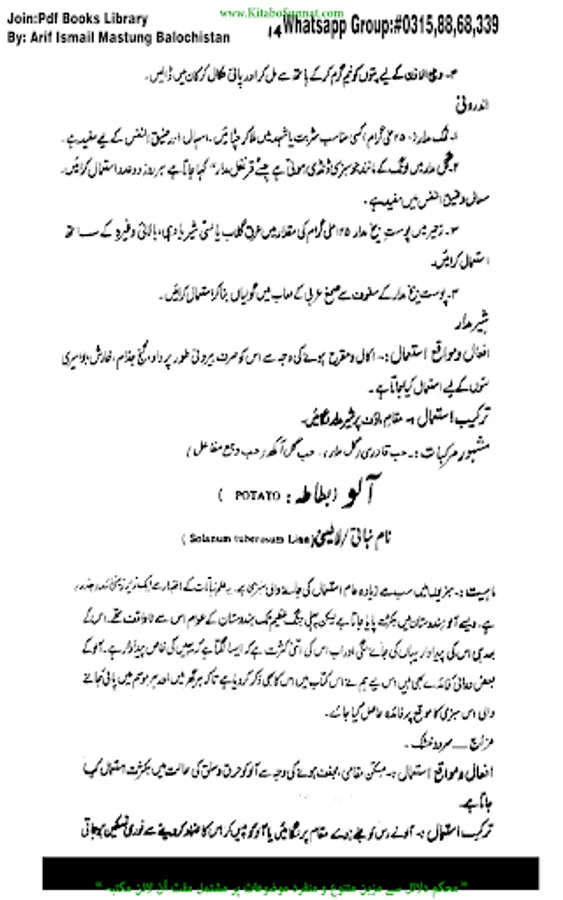 www.KitaboSunnat.com
Join:Pdf Books Library
14 Whatsapp Group:#0315,88,68,339
By: Arif Ismail Mastung Balochistan
۳- وجع الاذن کے لیے پتوں کو نیم گرم کر کے ہاتھ سے مل کر اور پانی نکال کر کان میں ڈالیں۔
اندرونی
۱- نمک مدار: ۲۵۰ ملی گرام، کسی مناسب شربت یا شہد میں ملا کر چٹائیں۔ اسہال اور ضیق النفس کے لیے مفید ہے۔
۲- گل مدار میں لونگ کے مانند جو سبزی ڈنڈی ہوتی ہے جسے "قرنفل مدار" کہا جاتا ہے ہر روز دو عدد استعمال کرائیں۔
سعال و ضیق النفس میں مفید ہے۔
۳- زحیر میں پوست بیخ مدار ۱۲۵ ملی گرام کی مقدار میں عرق گلاب یا لسی شیر یا دہی، بالائی وغیرہ کے ساتھ
استعمال کرائیں۔
۴- پوست بیخ مدار کے سفوف سے صمغ عربی کے لعاب میں گولیاں بنا کر استعمال کرائیں۔
شیر مدار
افعال و مواقع استعمال:۔ اکال و مقرح ہونے کی وجہ سے اس کو صرف بیرونی طور پر داد، گنج، جذام، خارش، بواسیری
مسوں کے لیے استعمال کیا جاتا ہے۔
ترکیب استعمال:۔ مقام ماؤف پر شیر مدار لگائیں۔
مشہور مرکبات:۔ حب قادری (گل مدار)، حب گل آکھ، حب وجع مفاصل)
آلو (بطاطہ: POTATO )
نام نباتی / لاطینی (Solanum tuberosum Linn )
ماہیت:۔ سبزیوں میں سب سے زیادہ عام استعمال کی جانے والی سبزی ہے۔ علم نباتات کے اعتبار سے ایک زیر زمینی
ہے، ویسے آلو ہندوستان میں بکثرت پایا جاتا ہے لیکن پہلی جنگ عظیم تک ہندوستان کے عوام اس سے ناواقف تھے۔ اس کے
بعد ہی اس کی پیداوار یہاں کی جانے لگی اور اب اس کی اتنی کثرت ہے کہ ایسا لگتا ہے کہ یہیں کی خاص پیداوار ہے۔ آلو کے
بعض دوائی فائدے بھی ہیں اس لیے ہم نے اس کتاب میں اس کا بھی ذکر کر دیا ہے تاکہ ہر گھر میں اور ہر موسم میں پائی جانے
والی اس سبزی کا موقع پر فائدہ حاصل کیا جائے۔
مزاج — سرد و خشک۔
افعال و مواقع استعمال:۔ مسکن مقامی، مجفف ہونے کی وجہ سے آلو کو حرق و سلق کی حالت میں بکثرت استعمال کیا
جاتا ہے۔
ترکیب استعمال:۔ آلو کے رس کو جلے ہوئے مقام پر لگائیں یا آلو کو پیس کر اس کا ضماد کر دینے سے فوری تسکین ہو جاتی
" محکم دلائل سے مزین متنوع و منفرد موضوعات پر مشتمل مفت آن لائن مکتبہ "